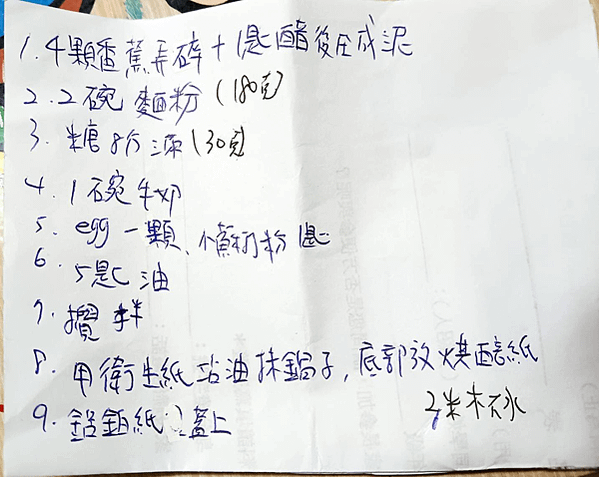 1. 4顆香蕉弄碎+1匙醋後压成泥
2. 2碗麵粉(180克)
3. 糖8分滿(30克)
4. 1碗牛奶
5. egg一顆、小蘇打粉1匙
6. 5匙油
7. 攪拌
8. 用衛生紙沾油抹鍋子,底部放烘焙紙
9. 鋁鉑紙蓋上
2米杯水